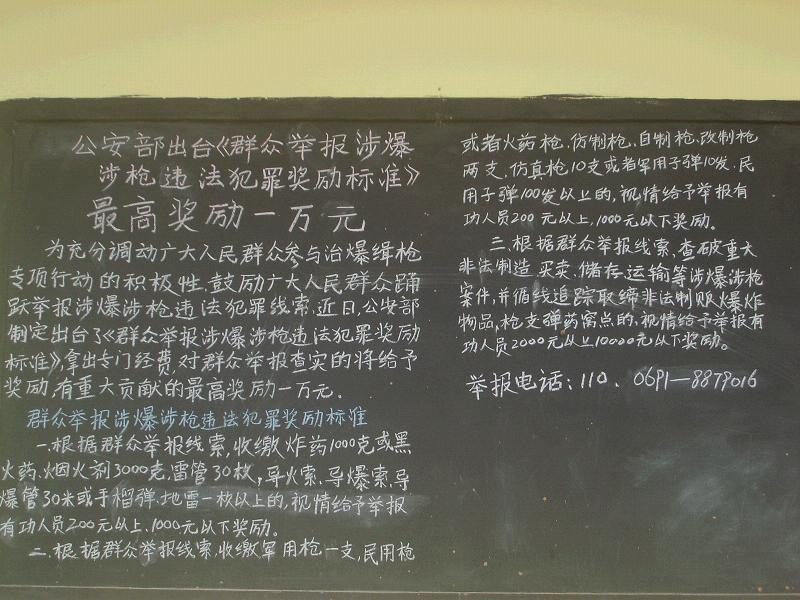 公安部出台《群众举报涉爆
涉枪违法犯罪奖励标准》
最高奖励一万元
为充分调动广大人民群众参与治爆缉枪
专项行动的积极性,鼓励广大人民群众踊
跃举报涉爆涉枪违法犯罪线索,近日,公安部
制定出台了《群众举报涉爆涉枪违法犯罪奖励
标准》,拿出专门经费对群众举报查实的将给予
奖励,有重大贡献的最高奖励一万元.
群众举报涉爆涉枪违法犯罪奖励标准
一.根据群众举报线索,收缴炸药1000克或黑
火药、烟火剂3000克,雷管30枚,导火索、导爆索、导
爆管30米或手榴弹、地雷一枚以上的,视情给予举报
有功人员200元以上,1000元以下奖励。
二.根据群众举报线索,收缴军用枪一支,民用枪
或者火药枪、仿制枪、自制枪、改制枪
两支,仿真枪10支或者军用子弹10发、民
用子弹100发以上的,视情给予举报有
功人员200元以上,1000元以下奖励。
三.根据群众举报线索,查破重大
非法制造、买卖、储存、运输等涉爆涉枪
案件,并循线追踪取缔非法制贩爆炸
物品,枪支弹药窝点的,视情给予举报有
功人员2000元以上10000元以下奖励。
举报电话:110、0691—8879016